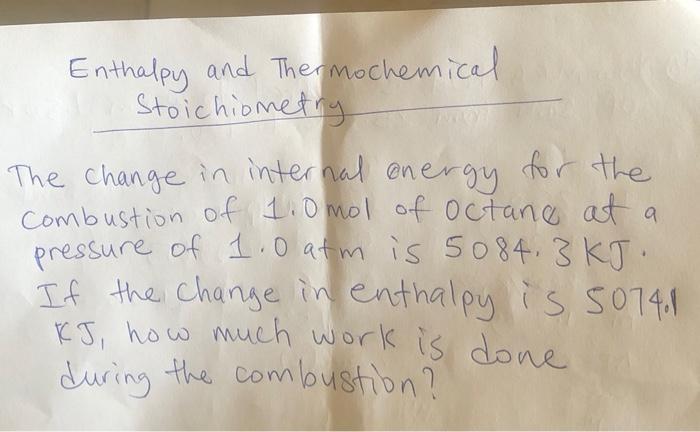 Enthalpy and Thermochemical
Stoichiometry
The change in internal energy for the
combustion of 1.0 mol of octane at a
pressure of 1.0 atm is 5084.3 KJ.
If the change in enthalpy is 5074.1
KJ, how much work is done
during the combustion?